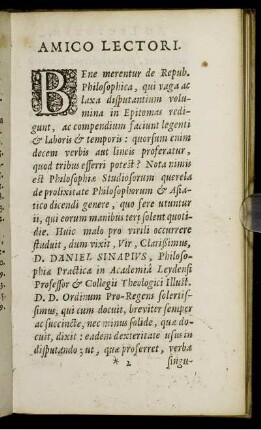 AMICO LECTORI.
BEne merentur de Repub.
Philosophica, qui vaga ac
laxa disputantium volu-
mina in Epitomas redi-
gunt, ac compendium faciunt legenti
& laboris & temporis: quorsum enim
decem verbis aut lineis proferatur,
quod tribus efferri potest? Nota nimis
est Philosophiæ Studiosorum querela
de prolixitate Philosophorum & Asia-
tico dicendi genere, quo fere utuntur
ii, qui eorum manibus teri solent quoti-
die. Huic malo pro virili occurrere
studuit, dum vixit, Vir, Clarissimus,
D. DANIEL SINAPIUS, Philoso-
phiæ Practicæ in Academiâ Leydensi
Professor & Collegii Theologici Illust.
D. D. Ordinum Pro-Regens solertis-
simus, qui cum docuit, breviter semper
ac succincte, nec minus solide, quæ do-
cuit, dixit: eadem dexteritate usus in
disputando; ut, quæ proferret, verba
* 2 singu-